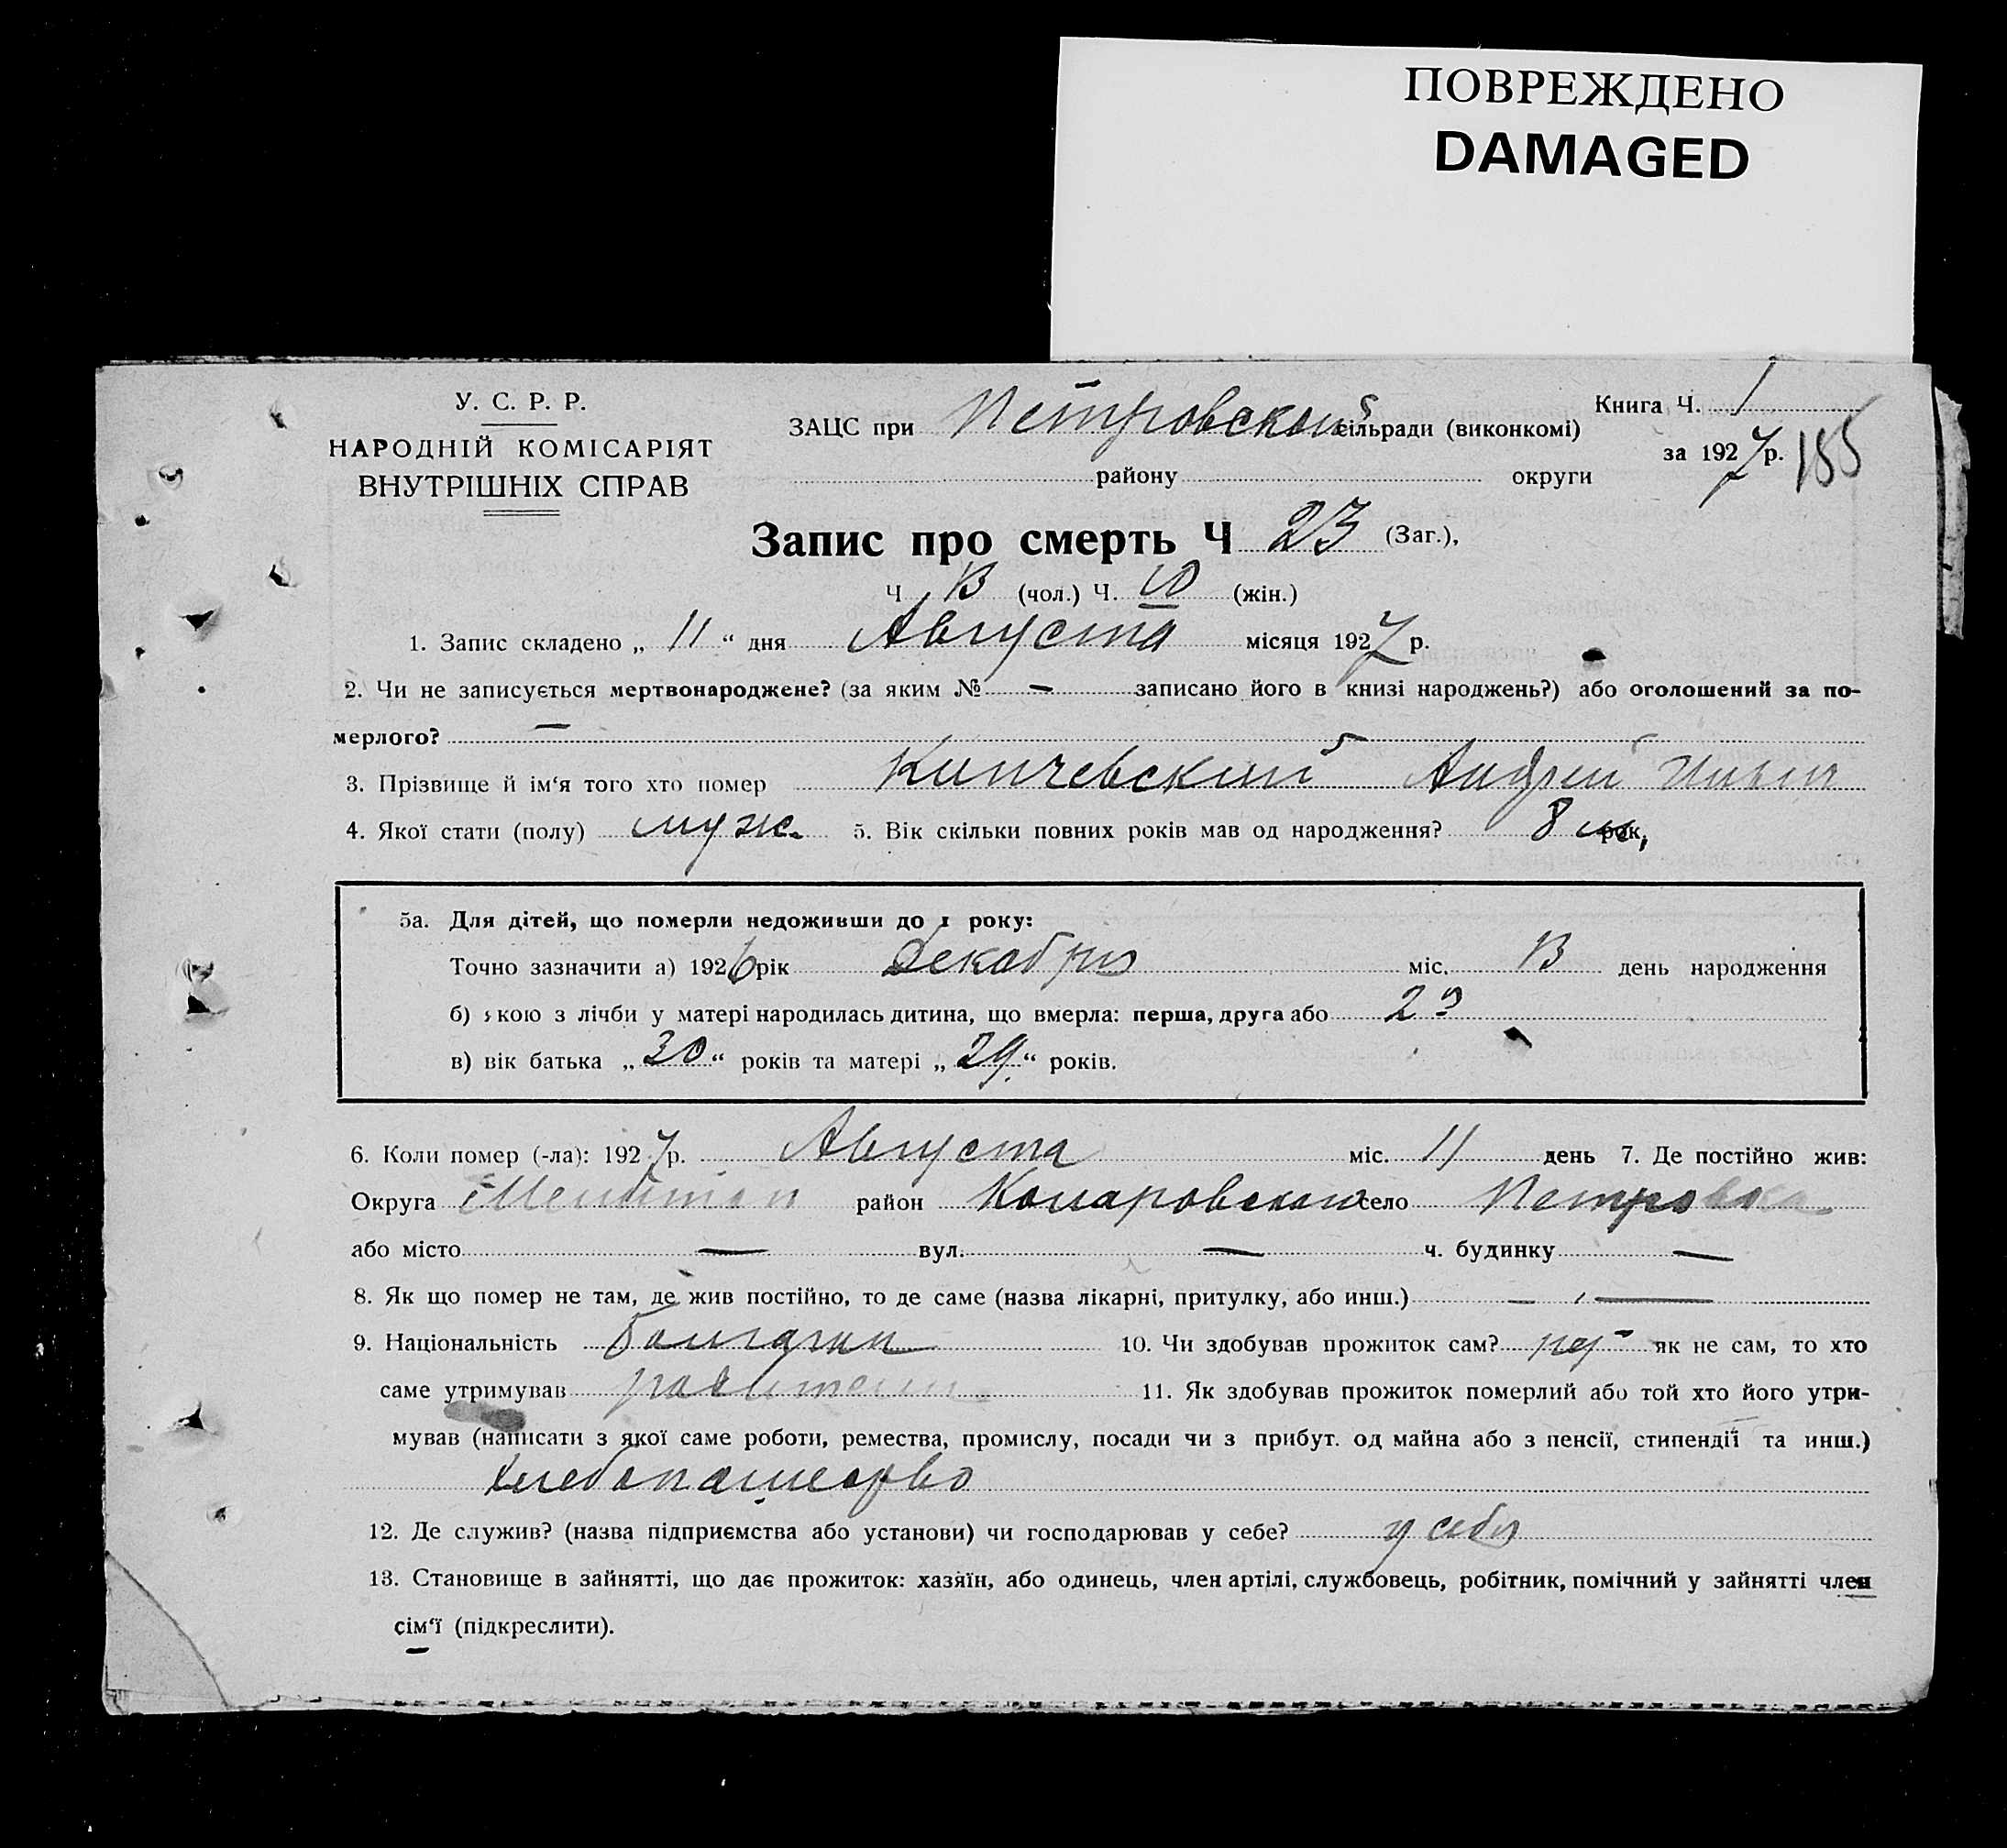 ПОВРЕЖДЕНО
DAMAGED
У. С. Р. Р.
НАРОДНІЙ КОМІСАРІЯТ
ВНУТРІШНІХ СПРАВ
ЗАЦС при Петровской сільради (виконкомі)
району округи
Книга Ч. 1
за 1927 р. 155
Запис про смерть Ч 23 (Заг.),
Ч 13 (чол.) Ч. 10 (жін.)
1. Запис складено „ 11 “ дня Августа місяця 1927 р.
2. Чи не записується мертвонароджене? (за яким № — записано його в книзі народжень?) або оголошений за по-
мерлого? —
3. Прізвище й ім‘я того хто помер Кипчевский Андрей Ильич
4. Якої стати (полу) муж. 5. Вік скільки повних років мав од народження? 8 м рок,
5а. Для дітей, що померли недоживши до 1 року:
Точно зазначити а) 1926 рік Декабря міс. 13 день народження
б) якою з лічби у матері народилась дитина, що вмерла: перша, друга або 2я
в) вік батька „ 30 “ років та матері „ 29 “ років.
6. Коли помер (-ла): 1927 р. Августа міс. 11 день 7. Де постійно жив:
Округа Мелитоп район Коларовском село Петровка
або місто — вул. — ч. будинку —
8. Як що помер не там, де жив постійно, то де саме (назва лікарні, притулку, або инш.) —
9. Національність болгарин 10. Чи здобував прожиток сам? як не сам, то хто
саме утримував родители 11. Як здобував прожиток померлий або той хто його утри-
мував (написати з якої саме роботи, ремества, промислу, посади чи з прибут. од майна або з пенсії, стипендії та инш.)
хлебопашество
12. Де служив? (назва підприємства або установи) чи господарював у себе? у себя
13. Становище в зайнятті, що дає прожиток: хазяїн, або одинець, член артілі, службовець, робітник, помічний у зайнятті член
сім‘ї (підкреслити).